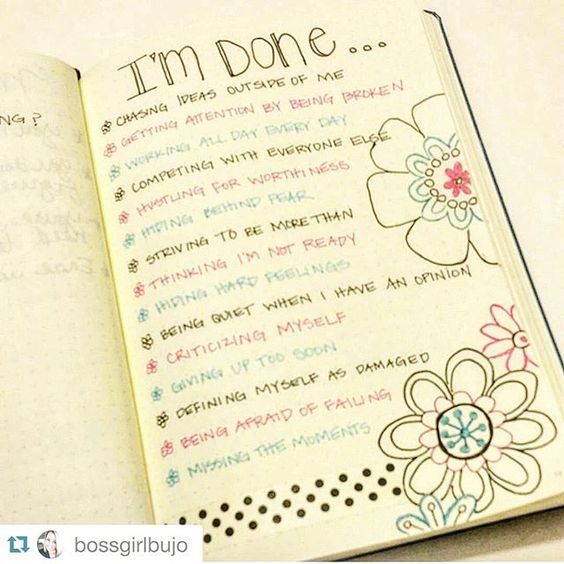 NG?
I'M DONE...
CHASING IDEAS OUTSIDE OF ME
GETTING ATTENTION BY BEING BROKEN
WORKING ALL DAY EVERY DAY
COMPETING WITH EVERYONE ELSE
HUSTLING FOR WORTHINESS
HIDING BEHIND FEAR
STRIVING TO BE MORE THAN
THINKING I'M NOT READY
HIDING HARD FEELINGS
BEING QUIET WHEN I HAVE AN OPINION
CRITICIZING MYSELF
GIVING UP TOO SOON
DEFINING MYSELF AS DAMAGED
BEING AFRAID OF FAILING
MISSING THE MOMENTS
bossgirlbujo